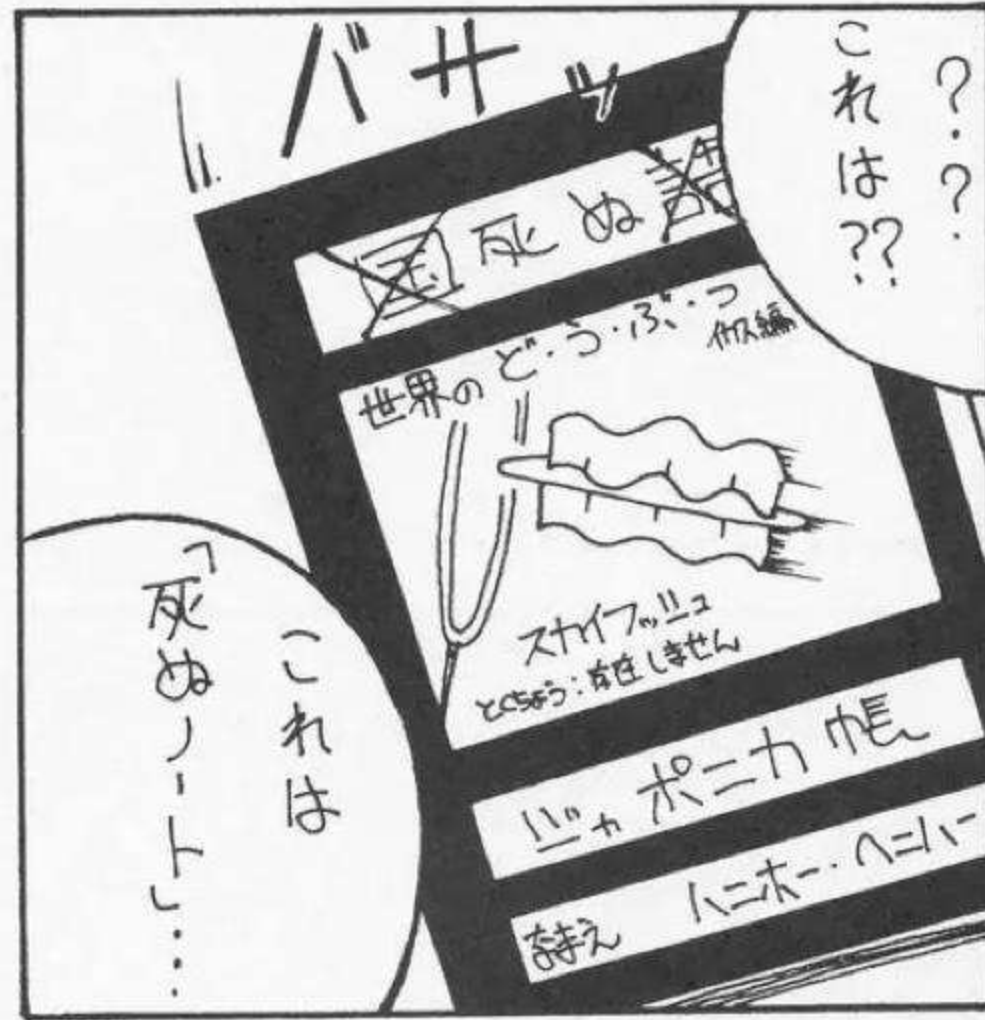 ？．？．
これは？？
バサッ
国死ぬ語
世界のど・う・ぶ・つ
スカイフィッシュ
とくちょう：存在しません
ジャポニカ帳
なまえ ハニホー・ヘニハー
これは
「死ぬノート」・・・